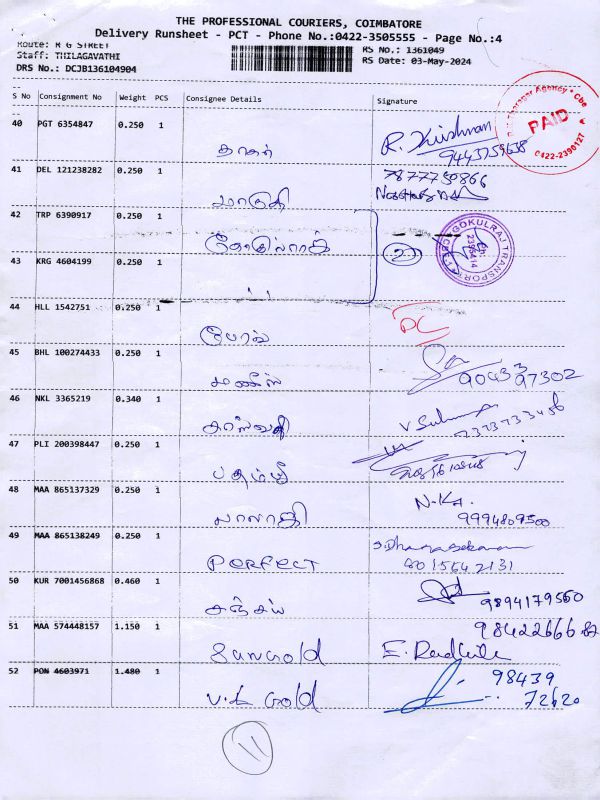 THE PROFESSIONAL COURIERS, COIMBATORE
Delivery Runsheet - PCT - Phone No.:0422-3505555 - Page No.:4
Route: R G STREET
Staff: THILAGAVATHI
DRS No.: DCJB136104904
RS No.: 1361049
RS Date: 03-May-2024
S No Consignment No Weight PCS Consignee Details Signature
40 PGT 6354847 0.250 1
R. Krishnan
PAID
0422-2390127
41 DEL 121238282 0.250 1
7877750866
மாருதி
42 TRP 6390917 0.250 1
கோகுல்ராஜ் 2
GOKULRAJ TRANSPORT
43 KRG 4604199 0.250 1
" "
44 HLL 1542751 0.250 1
DC
45 BHL 100274433 0.250 1
90433 97302
46 NKL 3365219 0.340 1
47 PLI 200398447 0.250 1
48 MAA 865137329 0.250 1
பாலாஜி N.KA.
9994809500
49 MAA 865138249 0.250 1
S. Dhanasekaran
PERFECT 8015642131
50 KUR 7001456868 0.460 1
சஞ்சய் 9894179560
51 MAA 574448157 1.150 1
Sun Gold E. Radhika
52 PON 4603971 1.480 1
98439
V.K Gold 72620
11